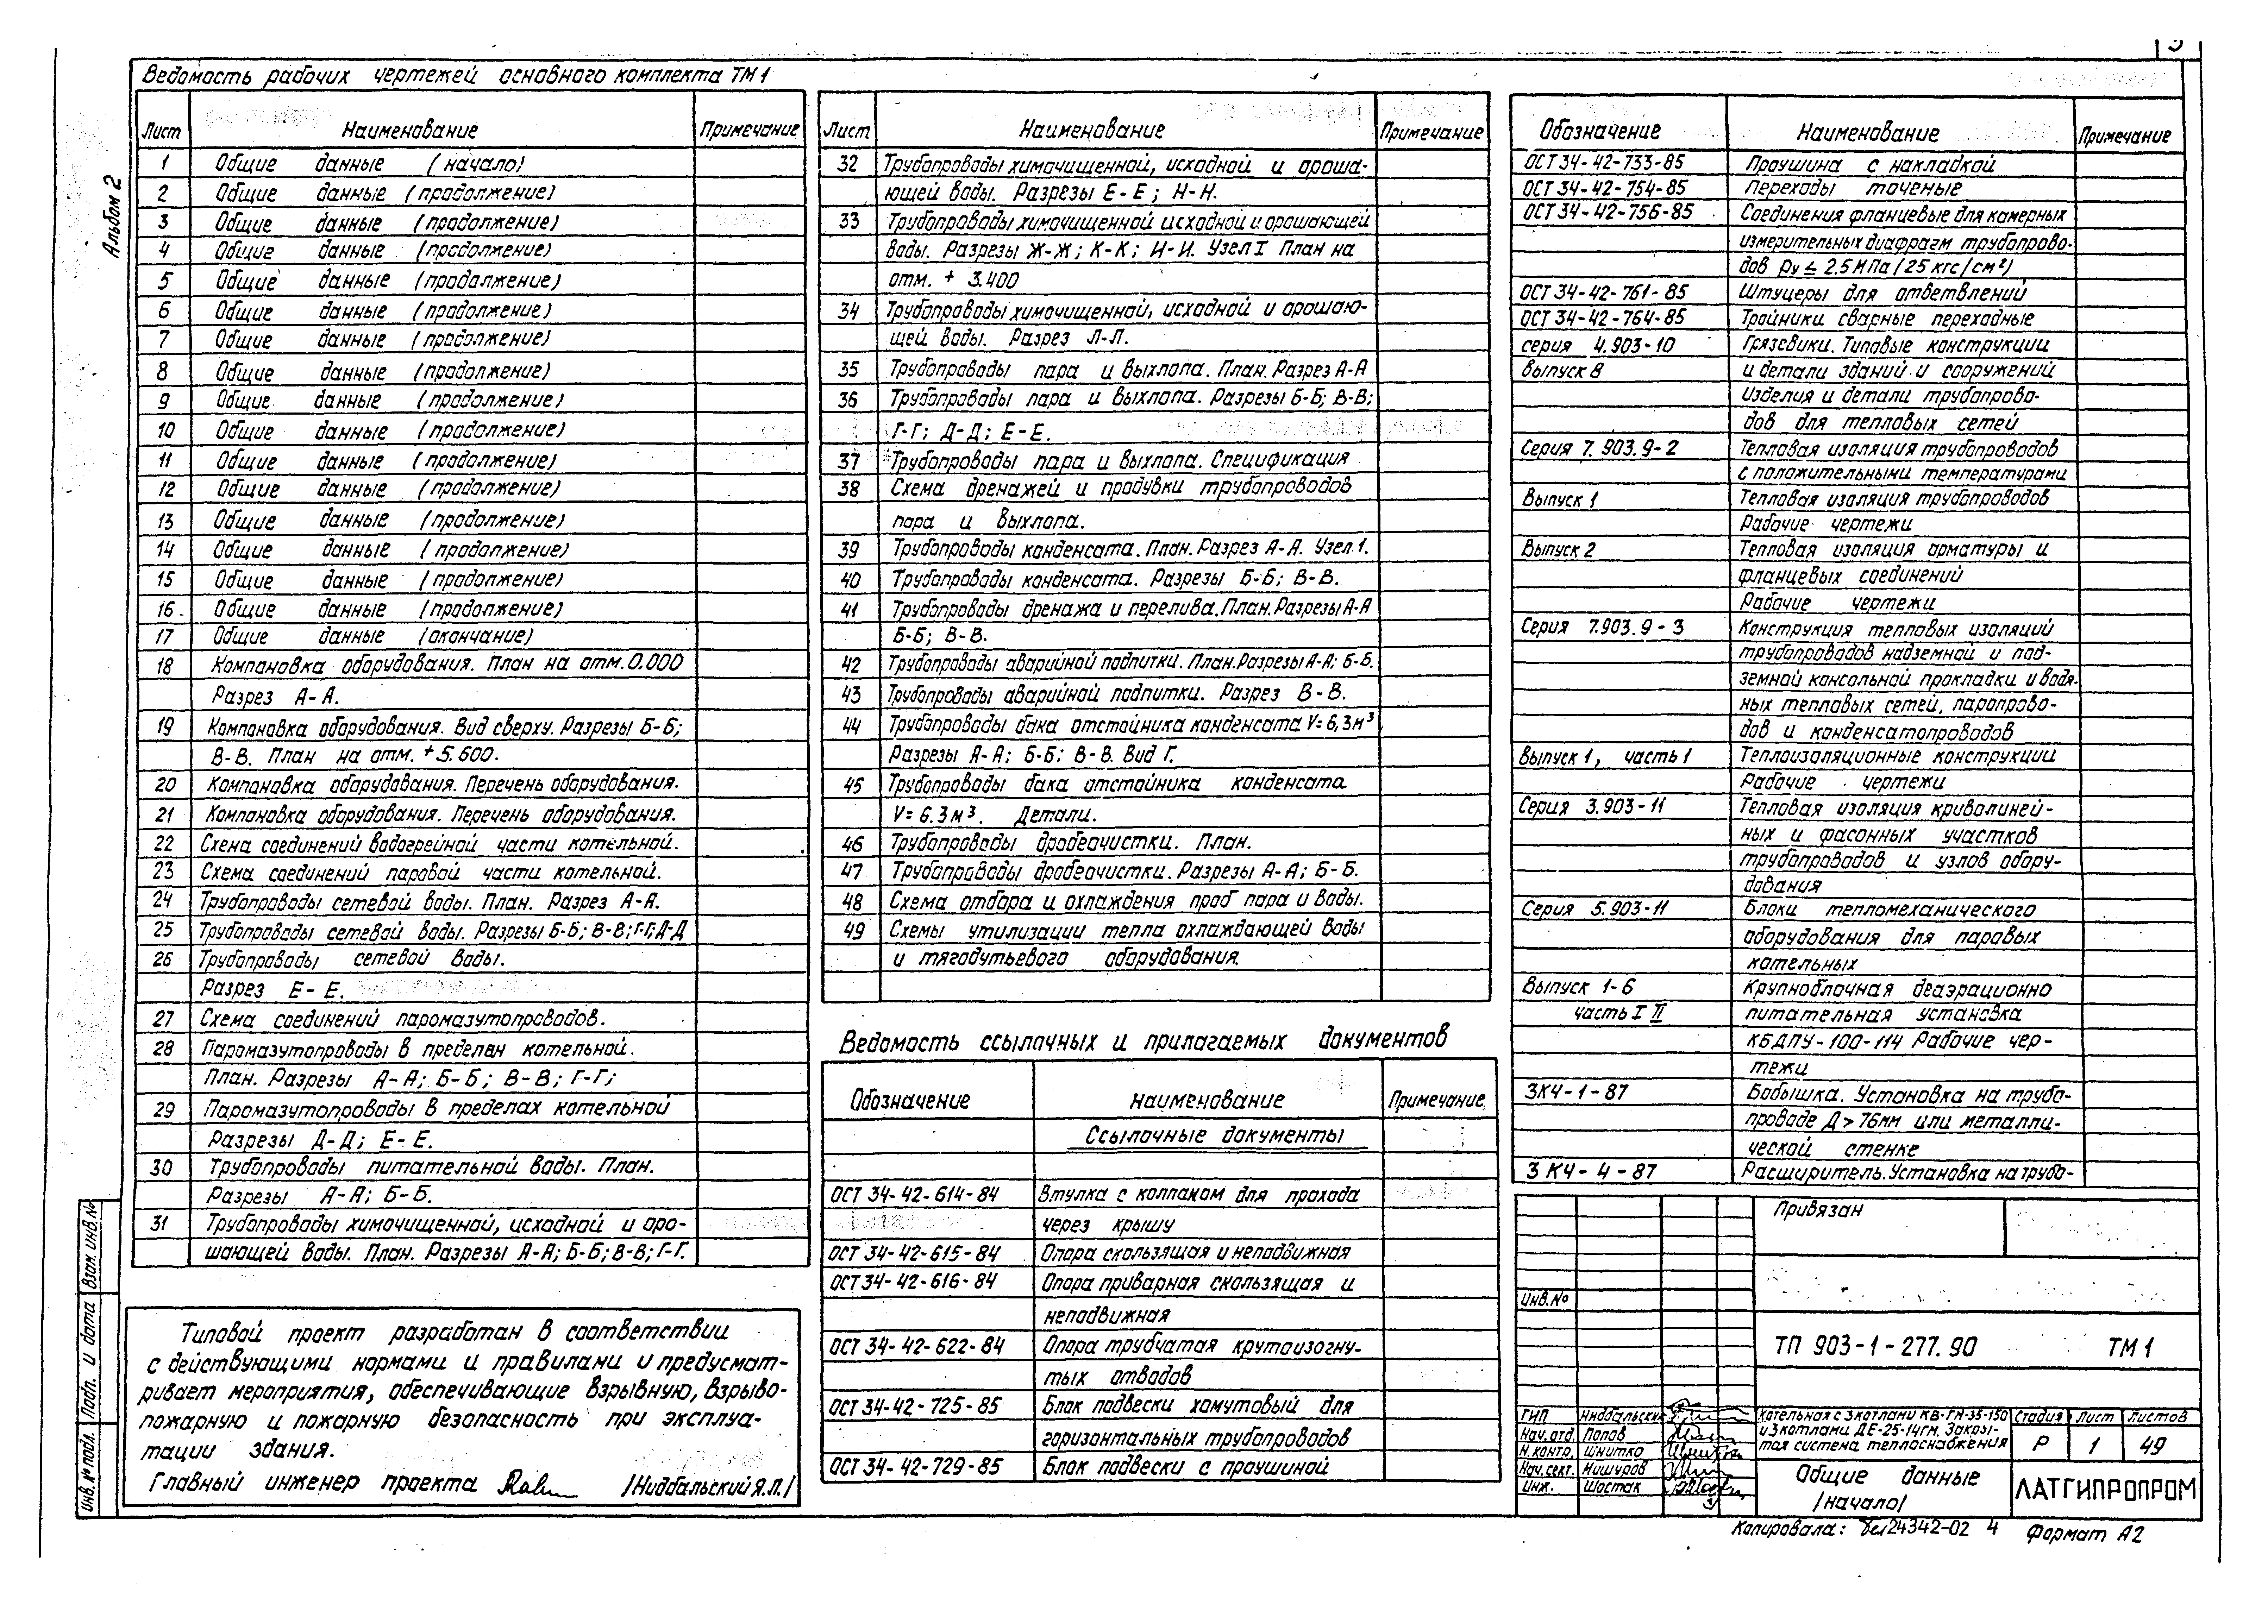 Альбом 2
Ведомость рабочих чертежей основного комплекта ТМ1
Лист Наименование Примечание
1 Общие данные (начало)
2 Общие данные (продолжение)
3 Общие данные (продолжение)
4 Общие данные (продолжение)
5 Общие данные (продолжение)
6 Общие данные (продолжение)
7 Общие данные (продолжение)
8 Общие данные (продолжение)
9 Общие данные (продолжение)
10 Общие данные (продолжение)
11 Общие данные (продолжение)
12 Общие данные (продолжение)
13 Общие данные (продолжение)
14 Общие данные (продолжение)
15 Общие данные (продолжение)
16 Общие данные (продолжение)
17 Общие данные (окончание)
18 Компановка оборудования. План на отм. 0.000
Разрез А-А.
19 Компановка оборудования. Вид сверху. Разрезы Б-Б;
В-В. План на отм. +5.600.
20 Компановка оборудования. Перечень оборудования.
21 Компановка оборудования. Перечень оборудования.
22 Схема соединений водогрейной части котельной.
23 Схема соединений паровой части котельной.
24 Трубопроводы сетевой воды. План. Разрез А-А.
25 Трубопроводы сетевой воды. Разрезы Б-Б; В-В; Г-Г; Д-Д
26 Трубопроводы сетевой воды.
Разрез Е-Е.
27 Схема соединений паромазутопроводов.
28 Паромазутопроводы в пределах котельной.
План. Разрезы А-А; Б-Б; В-В; Г-Г;
29 Паромазутопроводы в пределах котельной
Разрезы Д-Д; Е-Е.
30 Трубопроводы питательной воды. План.
Разрезы А-А; Б-Б.
31 Трубопроводы химочищенной, исходной и оро-
шающей воды. План. Разрезы А-А; Б-Б; В-В; Г-Г.
Типовой проект разработан в соответствии
с действующими нормами и правилами и предусмат-
ривает мероприятия, обеспечивающие взрывную, взрыво-
пожарную и пожарную безопасность при эксплуа-
тации здания.
Главный инженер проекта /Нидбальский Я.Л./
Лист Наименование Примечание
32 Трубопроводы химочищенной, исходной и ороша-
ющей воды. Разрезы Е-Е; Н-Н.
33 Трубопроводы химочищенной исходной и орошающей
воды. Разрезы Ж-Ж; К-К; И-И. Узел I План на
отм. + 3.400
34 Трубопроводы химочищенной, исходной и орошаю-
щей воды. Разрез Л-Л.
35 Трубопроводы пара и выхлопа. План. Разрез А-А
36 Трубопроводы пара и выхлопа. Разрезы Б-Б; В-В;
Г-Г; Д-Д; Е-Е.
37 Трубопроводы пара и выхлопа. Спецификация
38 Схема дренажей и продувки трубопроводов
пара и выхлопа.
39 Трубопроводы конденсата. План. Разрез А-А. Узел 1.
40 Трубопроводы конденсата. Разрезы Б-Б; В-В.
41 Трубопроводы дренажа и перелива. План. Разрезы А-А
Б-Б; В-В.
42 Трубопроводы аварийной подпитки. План. Разрезы А-А; Б-Б.
43 Трубопроводы аварийной подпитки. Разрез В-В.
44 Трубопроводы бака отстойника конденсата V=6,3м³
Разрезы А-А; Б-Б; В-В. Вид Г.
45 Трубопроводы бака отстойника конденсата
V=6.3м³. Детали.
46 Трубопроводы дробеочистки. План.
47 Трубопроводы дробеочистки. Разрезы А-А; Б-Б.
48 Схема отбора и охлаждения проб пара и воды.
49 Схемы утилизации тепла охлаждающей воды
и тягодутьевого оборудования.
Ведомость ссылочных и прилагаемых документов
Обозначение Наименование Примечание
Ссылочные документы
ОСТ 34-42-614-84 Втулка с колпаком для прохода
через крышу
ОСТ 34-42-615-84 Опора скользящая и неподвижная
ОСТ 34-42-616-84 Опора приварная скользящая и
неподвижная
ОСТ 34-42-622-84 Опора трубчатая крутоизогну-
тых отводов
ОСТ 34-42-725-85 Блок подвески хомутовый для
горизонтальных трубопроводов
ОСТ 34-42-729-85 Блок подвески с проушиной
Обозначение Наименование Примечание
ОСТ 34-42-733-85 Проушина с накладкой
ОСТ 34-42-754-85 Переходы точеные
ОСТ 34-42-756-85 Соединения фланцевые для камерных
измерительных диафрагм трубопрово-
дов Ру ≤ 2.5 МПа (25 кгс/см²)
ОСТ 34-42-761-85 Штуцеры для ответвлений
ОСТ 34-42-764-85 Тройники сварные переходные
серия 4.903-10 Грязевики. Типовые конструкции
выпуск 8 и детали зданий и сооружений
Изделия и детали трубопрово-
дов для тепловых сетей
Серия 7.903.9-2 Тепловая изоляция трубопроводов
с положительными температурами
Выпуск 1 Тепловая изоляция трубопроводов
Рабочие чертежи
Выпуск 2 Тепловая изоляция арматуры и
фланцевых соединений
Рабочие чертежи
Серия 7.903.9-3 Конструкция тепловых изоляций
трубопроводов надземной и под-
земной консольной прокладки и водя-
ных тепловых сетей, паропрово-
дов и конденсатопроводов
Выпуск 1, часть 1 Теплоизоляционные конструкции
Рабочие чертежи
Серия 3.903-11 Тепловая изоляция криволиней-
ных и фасонных участков
трубопроводов и узлов обору-
дования
Серия 5.903-11 Блоки тепломеханического
оборудования для паровых
котельных
Выпуск 1-6 Крупноблочная деаэрационно
часть I II питательная установка
КБДПУ-100-114 Рабочие чер-
тежи
ЗК4-1-87 Бобышка. Установка на трубо-
проводе Д>76мм или металли-
ческой стенке
ЗК4-4-87 Расширитель. Установка на трубо-
Привязан
Инв.№
ТП 903-1-277.90 ТМ1
ГИП Нидбальский
Нач.отд. Попов
Н.контр. Шнитко
Нач.сект. Мишуров
Инж. Шостак
Котельная с 3 котлами КВ-ГМ-35-150
и 3 котлами ДЕ-25-14ГМ. Закры-
тая система теплоснабжения
Стадия Лист Листов
Р 1 49
Общие данные
/начало/
ЛАТГИПРОПРОМ
Копировала: 24342-02 4 Формат А2
Инв.№ подл. Подп. и дата Взам. инв.№